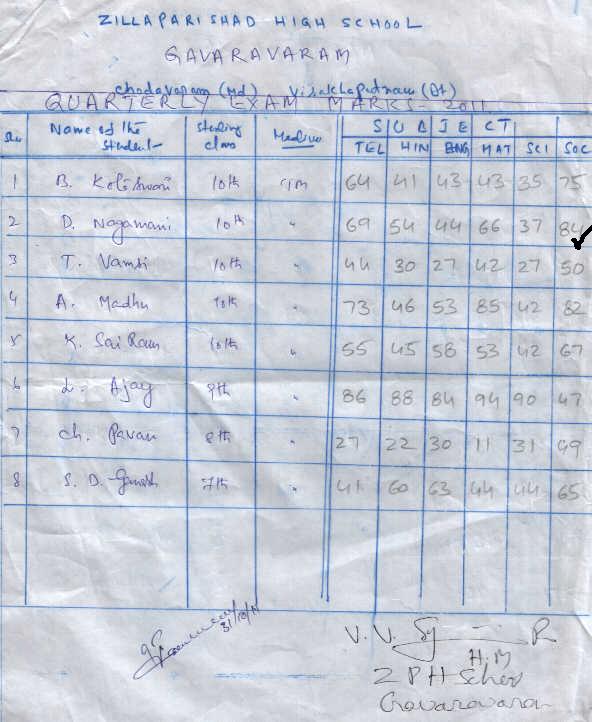 ZILLAPARISHAD HIGH SCHOOL
GAVARAVARAM
chodavaram (Md) Visakhapatnam (Dt)
QUARTERLY EXAM MARKS - 2011
Name of the Student Studing class Medium SUBJECT
TEL HIN ENG MAT SCI SOC
1 B. 10th T/M 64 41 43 43 35 75
2 D. Nagamani 10th " 69 54 44 66 37 84
3 T. Vamsi 10th " 44 30 27 42 27 50
4 A. Madhu 10th " 73 46 53 85 42 82
5 K. Sai Ram 10th " 55 45 58 53 42 67
6 L. Ajay 9th " 86 88 84 94 90 47
7 Ch. Pavan 8th " 27 22 30 11 31 49
8 S. D. Ganesh 7th " 41 60 63 44 44 65
31/10/11
V. V.
H.M
Z P H School
Gavaravaram